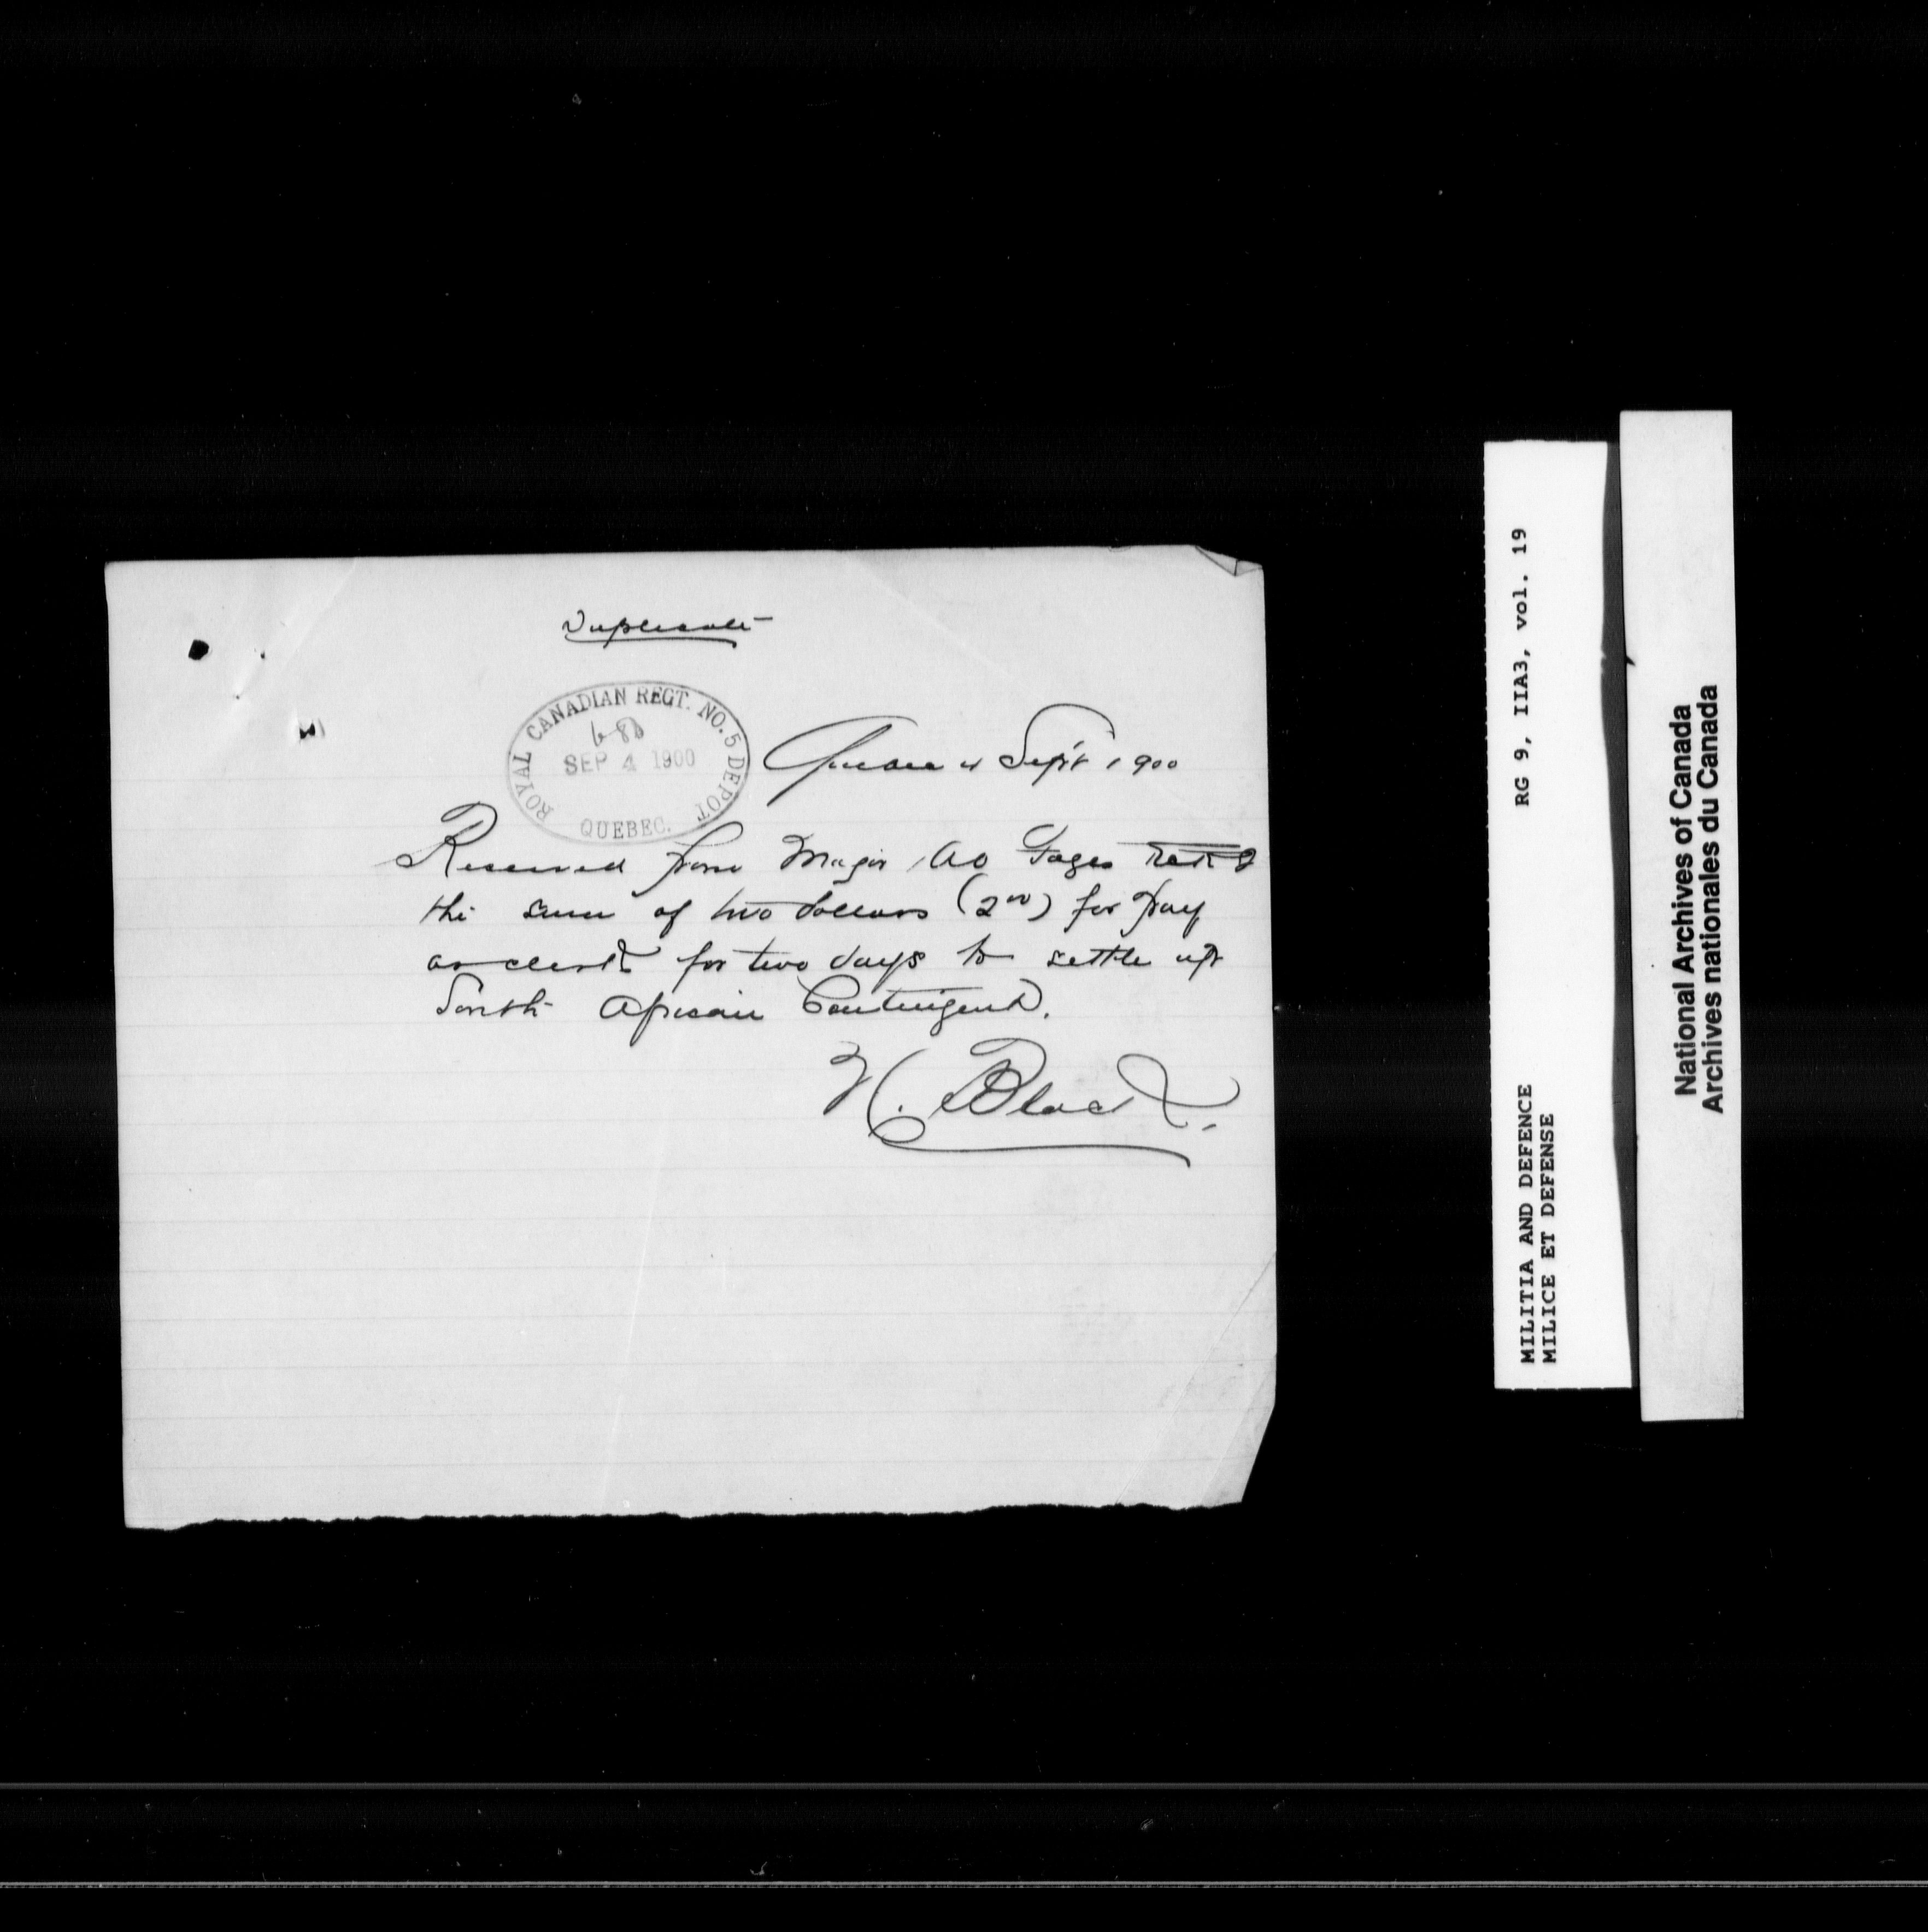 Duplicate
ROYAL CANADIAN REGT. NO. 5 DEPOT
SEP 4 1900
QUEBEC.
Quebec 4 Sept 1900
Received from Major AO Fages
the sum of two dollars (200) for pay
as clerk for two days to settle up
South African Contingent.
H. Black.
MILITIA AND DEFENCE RG 9, IIA3, vol. 19
MILICE ET DEFENSE
National Archives of Canada
Archives nationales du Canada